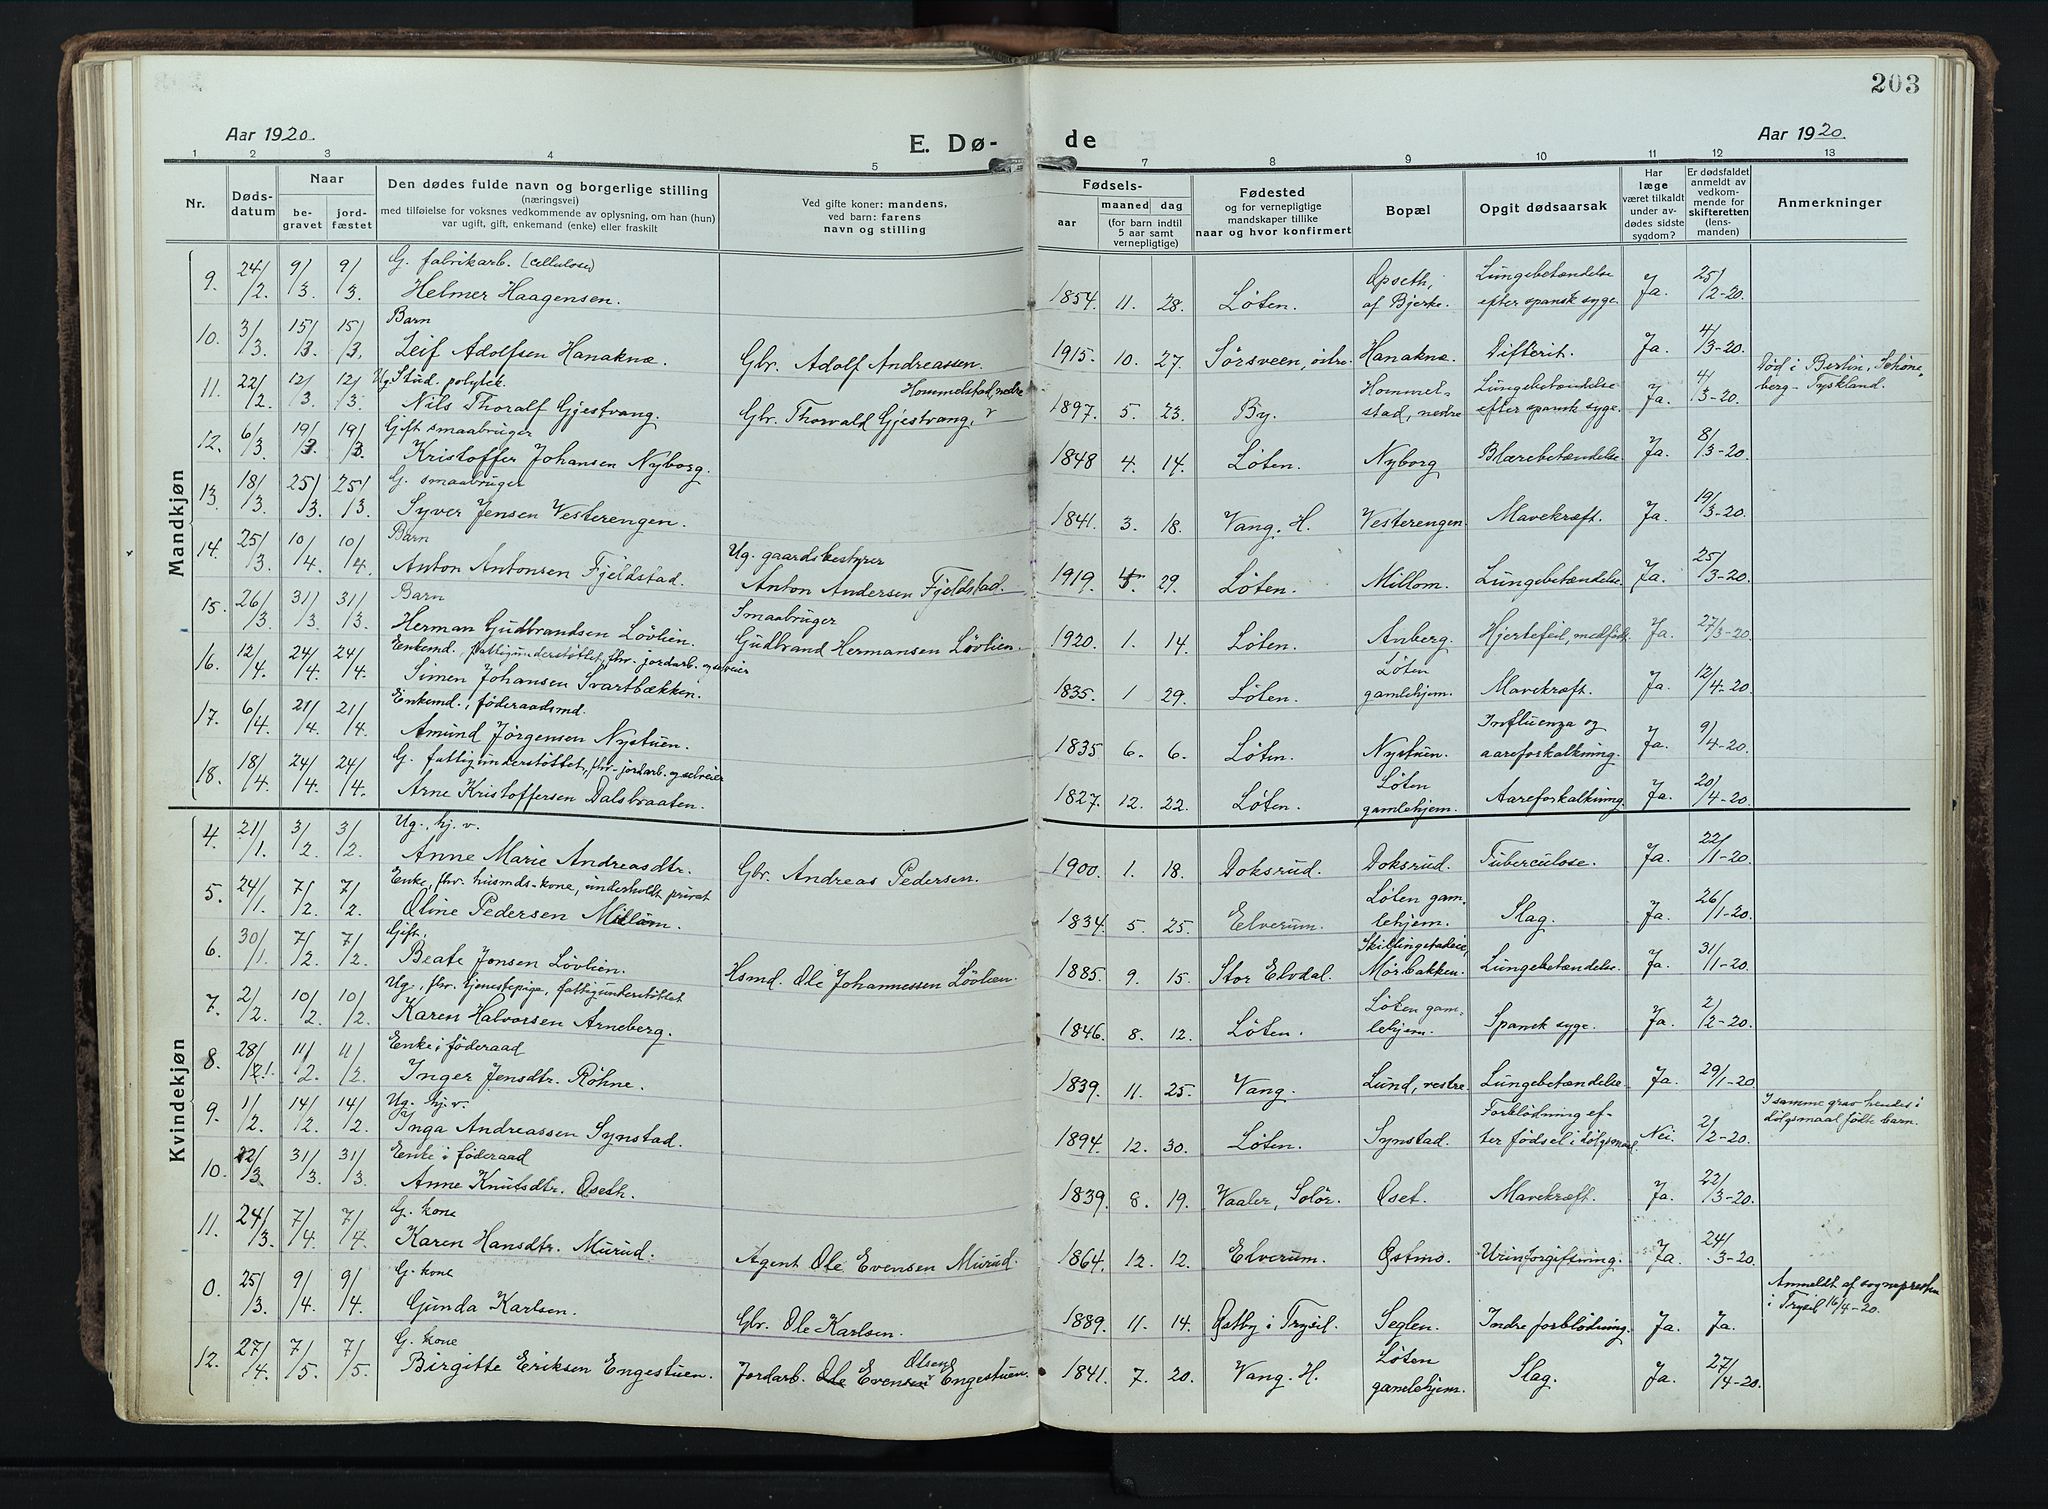 203
Aar 1920.
E. Dø- de
Aar 1920.
1 2 3 4 5 7 8 9 10 11 12 13
Nr.
Døds-datum
Naar
be-gravet
jord-fæstet
Den dødes fulde navn og borgerlige stilling
(næringsvei)
med tilføielse for voksnes vedkommende av oplysning, om han (hun)
var ugift, gift, enkemand (enke) eller fraskilt
Ved gifte koner: mandens,
ved barn: farens
navn og stilling
Fødsels-
aar
maaned
dag
(for barn indtil
5 aar samt
vernepligtige)
Fødested
og for vernepligtige
mandskaper tillike
naar og hvor konfirmert
Bopæl
Opgit dødsaarsak
Har
læge
været tilkaldt
under av-
dødes sidste
sygdom?
Er dødsfaldet
anmeldt av
vedkom-
mende for
skifteretten
(lens-
manden)
Anmerkninger
Mandkjøn
9. 24/2. 9/3. 9/3. G. fabrikarb. (cellulose)
Helmer Haagensen. 1854. 11. 28. Løten. Opseth, af Bjerke. Lungebetændelse efter spansk syge. Ja. 25/2-20.
10. 3/3. 15/3. 15/3. Barn
Leif Adolfsen Hanaknæ. Gbr. Adolf Andreassen. 1915. 10. 27. Sørsveen, østre. Hanaknæ. Difterit. Ja. 4/3-20.
11. 22/2. 12/3. 12/3. Ug. Stud. polytek.
Nils Thoralf Gjestvang. Gbr. Thorvald Gjestvang, Hommelstad, nedre 1897. 5. 23. By. Hommelstad, nedre Lungebetændelse efter spansk syge. Ja. 4/3-20. Død i Berlin, Schöneberg - Tyskland.
12. 6/3. 19/3. 19/3. Gift smaabruger
Kristoffer Johansen Nyborg. 1848 4. 14. Løten. Nyborg Blærebetændelse. Ja. 8/3-20.
13. 18/3. 25/3. 25/3. G. smaabruger
Syver Jensen Vesterengen. 1841. 3. 18. Vang. H. Vesterengen. Mavekræft. Ja. 19/3-20.
14. 25/3. 10/4. 10/4. Barn
Anton Antonsen Fjeldstad. Ug. gaardsbestyrer
Anton Andersen Fjeldstad. 1919. 29. Løten. Millom. Lungebetændelse. Ja. 25/3-20.
15. 26/3. 31/3. 31/3. Barn
Herman Gudbrandsen Løvlien. Smaabruger
Gudbrand Hermansen Løvlien. 1920. 1. 14. Løten. Anberg. Hjertefeil, medfødt. Ja. 27/3-20.
16. 12/4. 24/4. 24/4. Enkemd., fattigunderstøttet, fhv. jordarb. og selveier
Simen Johansen Svartbækken. 1835. 1. 29. Løten. Løten gamlehjem. Mavekræft. Ja. 12/4-20.
17. 6/4. 21/4. 21/4. Enkemd., føderaadsmd.
Amund Jørgensen Nystuen. 1835 6. 6. Løten. Nystuen. Influenza og aareforkalkning. Ja. 9/4-20.
18. 18/4. 24/4. 24/4. G. fattigunderstøttet, fhv. jordarb. og selveier
Arne Kristoffersen Dalsbraaten. 1827. 12. 22. Løten. Løten gamlehjem. Aareforkalkning. Ja. 20/4-20.
Kvindekjøn
4. 21/1. 3/2. 3/2. Ug., hj. v.
Anne Marie Andreasdtr. Gbr. Andreas Pedersen. 1900. 1. 18. Doksrud. Doksrud. Tuberculose. Ja. 22/1-20.
5. 24/1. 7/2. 7/2. Enke, fhv. husmds-kone, underholdt privat
Oline Pedersen Millom. 1834. 5. 25. Elverum. Løten gamlehjem. Slag. Ja. 26/1-20.
6. 30/1. 7/2. 7/2. Gift.
Beate Jonsen Løvlien. Hsmd. Ole Johannessen Løvlien. 1885. 9. 15. Stor Elvdal. Skillingstadeie, Mørbakken. Lungebetændelse. Ja. 31/1-20.
7. 2/2. 10/2. 10/2. Ug., fhv. tjenestepige, fattigunderstøttet
Karen Halvorsen Arneberg. 1846. 8. 12. Løten. Løten gamlehjem. Spansk syge. Ja. 2/2-20.
8. 28/1. 11/2. 11/2. Enke i føderaad
Inger Jensdtr. Røhne. 1839. 11. 25. Vang. Lund, vestre. Lungebetændelse. Ja. 29/1-20.
9. 1/2. 14/2. 14/2. Ug. hj. v.
Inga Andreassen Synstad. 1894. 12. 30. Løten. Synstad. Forblødning efter fødsel i dølgsmaal. Nei. 2/2-20. I samme grav hendes i dølgsmaal fødte barn.
10. 22/3. 31/3. 31/3. Enke i føderaad
Anne Knutsdtr. Oseth. 1839. 8. 19. Vaaler, Solør. Oset. Mavekræft. Ja. 22/3-20.
11. 24/3. 7/4. 7/4. G. kone
Karen Hansdtr. Murud. Agent Ole Evensen Murud. 1864. 12. 12. Elverum. Østmo. Urinforgiftning. Ja. 24/3-20.
0. 25/3. 9/4. 9/4. G. kone
Gunda Karlsen. Gbr. Ole Karlsen. 1889. 11. 14. Galby i Trysil. Seglen. Indre forblødning. Ja. Ja. Anmeldt af sognepresten i Trysil 16/4-20.
12. 27/4. 7/5. 7/5. G. kone
Birgitte Eriksen Engestuen. Jordarb. Ole Evensen Olsen Engestuen. 1841. 7. 20. Vang. H. Løten gamlehjem. Slag. Ja. 27/4-20.